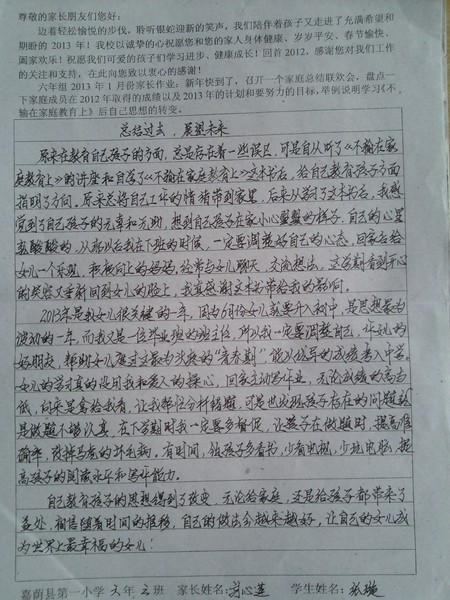 尊敬的家长朋友们您好：
迈着轻松愉悦的步伐，聆听银蛇迎新的笑声，我们陪伴着孩子又走进了充满希望和
期盼的 2013 年！我校以诚挚的心祝愿您和您的家人身体健康、岁岁平安、春节愉快、
阖家欢乐！祝愿我们可爱的孩子们学习进步、健康成长！回首 2012，感谢您对我们工作
的关注和支持，在此向您致以衷心的感谢！
六年组 2013 年 1 月份家长作业：新年快到了，召开一个家庭总结联欢会，盘点一
下家庭成员在 2012 年取得的成绩以及 2013 年的计划和要努力的目标，举例说明学习《不
输在家庭教育上》后自己思想的转变。
总结过去，展望未来
原来在教育自己孩子的方面，总是存在着一些误区，可是自从听了《不输在家
庭教育上》的讲座和自学了《不输在家庭教育上》这本书后，给自己教育孩子方面
指明了方向。原来总将自己工作的情绪带到家里，后来从看到了这本书后，我感
觉到了自己孩子的无辜和无助，想到自己孩子在家小心翼翼的样子，自己的心里
酸酸的，从那以后我在下班的时候，一定要调整好自己的心态，回家后给
女儿一个乐观、积极向上的妈妈，经常与女儿聊天，交流想法，这学期看到开心
的笑容又重新回到女儿的脸上，我真感谢这本书带给我的影响。
2013年是我女儿很关键的一年，因为何份女儿就要升入初中，是思想最为
波动的一年，而我又是一位毕业班的班主任，所以我一定要调整自己，作她的
好朋友，帮助女儿渡过最为头疼的“青春期”能以优异的成绩考入中学。
女儿的学习真的没用我和家人的操心，回家主动写作业，无论成绩的高与
低，向来是拿给我看，让我帮忙分析错题，可是也发现孩子存在的问题就
是做题不够认真，在下学期时我一定要多督促，让孩子在做题时，提高准
确率，改掉马虎的坏毛病，有时间，领孩子多看书，少看电视，少玩电脑，提
高孩子的阅读水平和写作能力。
自己教育孩子的思想得到了改变，无论给家庭，还是给孩子都带来了
益处，相信随着时间的推移，自己的做法会越来越好，让自己的女儿成
为世界上最幸福的女儿！
嘉荫县第一小学 六 年 二 班 家长姓名： 心莲 学生姓名：张璇